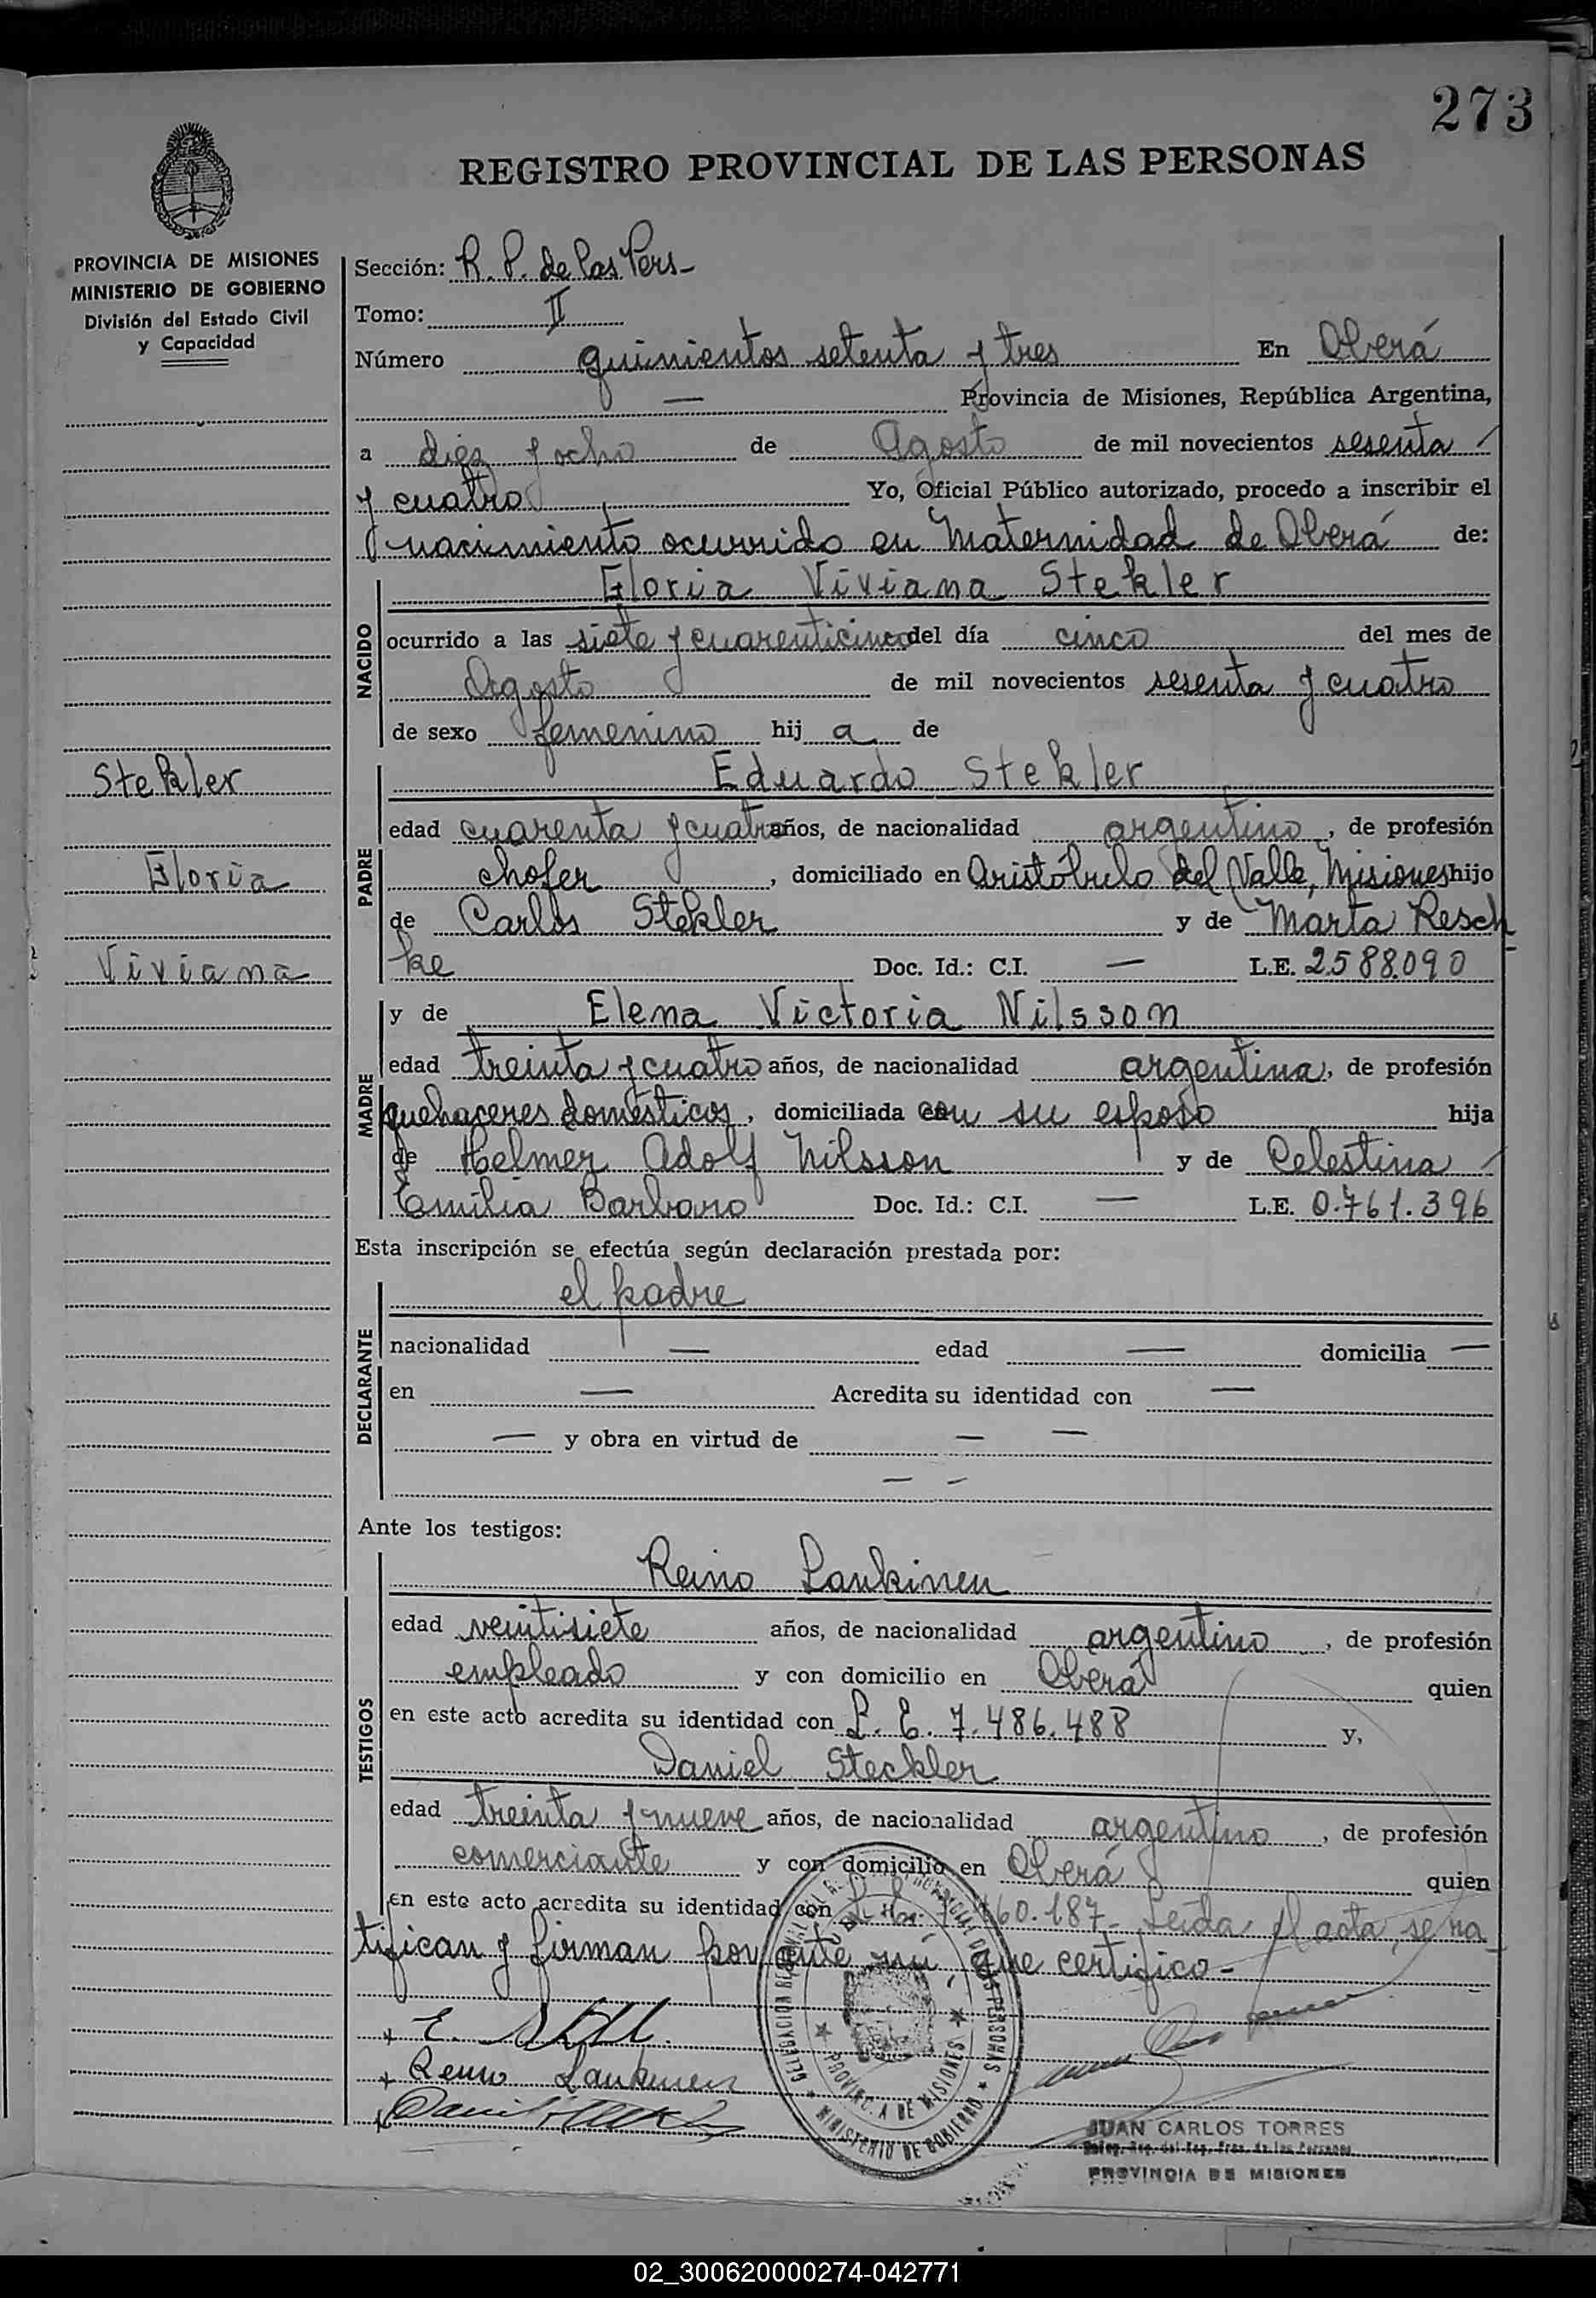 273
REGISTRO PROVINCIAL DE LAS PERSONAS
PROVINCIA DE MISIONES
MINISTERIO DE GOBIERNO
División del Estado Civil
y Capacidad
Sección: R. P. de las Pers-
Tomo: II
Número quinientos setenta y tres En Oberá
— Provincia de Misiones, República Argentina,
a diez y ocho de Agosto de mil novecientos sesenta
y cuatro Yo, Oficial Público autorizado, procedo a inscribir el
nacimiento ocurrido en Maternidad de Oberá de:
NACIDO
Gloria Viviana Stekler
ocurrido a las siete y cuarenticinco del día cinco del mes de
Agosto de mil novecientos sesenta y cuatro
de sexo femenino hij a de
Stekler
Gloria
Viviana
PADRE
Eduardo Stekler
edad cuarenta y cuatro años, de nacionalidad argentino, de profesión
chofer, domiciliado en Aristóbulo del Valle, Misiones hijo
de Carlos Stekler y de Marta Resch
ke Doc. Id.: C.I. — L.E. 2588.090
MADRE
y de Elena Victoria Nilsson
edad treinta y cuatro años, de nacionalidad argentina, de profesión
quehaceres domésticos, domiciliada con su esposo hija
de Helmer Adolf Nilsson y de Celestina
Emilia Barbaro Doc. Id.: C.I. — L.E. 0.761.396
Esta inscripción se efectúa según declaración prestada por:
DECLARANTE
el padre
nacionalidad — edad — domicilia —
en — Acredita su identidad con —
— y obra en virtud de — —
— —
Ante los testigos:
TESTIGOS
Reino Lankinen
edad veintisiete años, de nacionalidad argentino, de profesión
empleado y con domicilio en Oberá quien
en este acto acredita su identidad con L. E. 7.486.488 y,
Daniel Steckler
edad treinta y nueve años, de nacionalidad argentino, de profesión
comerciante y con domicilio en Oberá quien
en este acto acredita su identidad con 60.187- Leída el acta, se ra
tifican y firman por ante mí, que certifico-
+ E.
+ Reino Lankinen
+ Daniel
PROVINCIA DE MISIONES
MINISTERIO DE GOBIERNO
JUAN CARLOS TORRES
Deleg. Reg. del Reg. Prov. de las Personas
PROVINCIA DE MISIONES
02_300620000274-042771